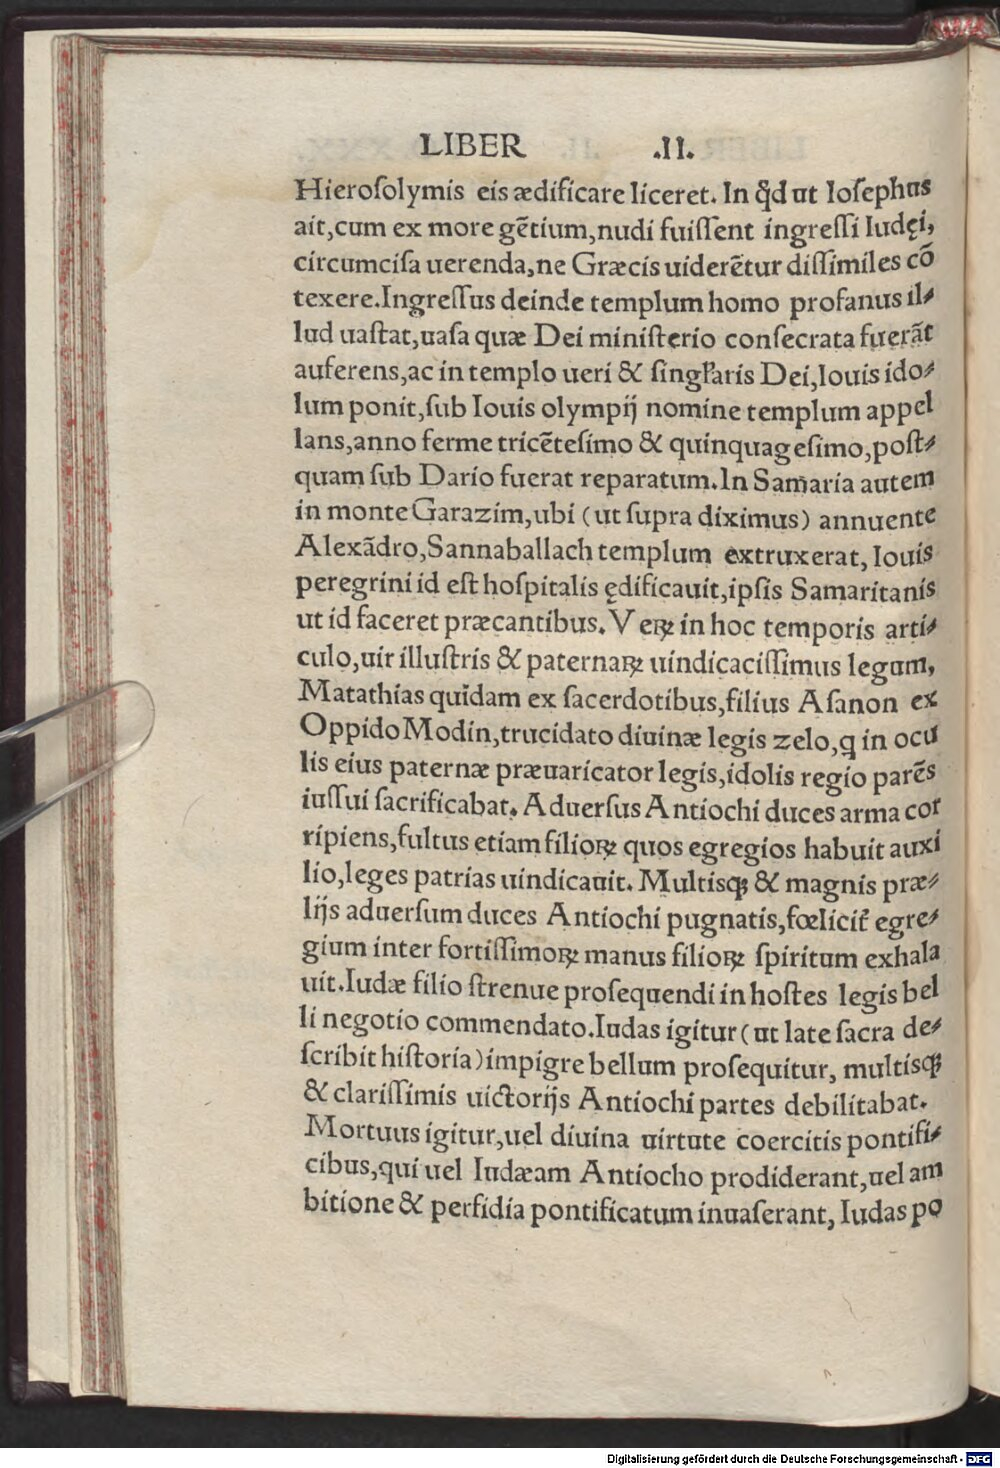 LIBER .II.
Hieroſolymis eis ædificare liceret. In qđ ut Ioſephus
ait, cum ex more gẽtium, nudi fuiſſent ingreſſi Iudęi,
circumciſa uerenda, ne Græcis uiderẽtur diſſimiles cõ
texere. Ingreſſus deinde templum homo profanus il⸗
lud uaſtat, uaſa quæ Dei miniſterio conſecrata fuerãt
auferens, ac in templo ueri & ſingl'aris Dei, Iouis ido⸗
lum ponit, ſub Iouis olympij nomine templum appel
lans, anno ferme tricẽteſimo & quinquageſimo, poſt⸗
quam ſub Dario fuerat reparatum. In Samaria autem
in monte Garazim, ubi (ut ſupra diximus) annuente
Alexãdro, Sannaballach templum extruxerat, Iouis
peregrini id eſt hoſpitalis ędificauit, ipſis Samaritanis
ut id faceret præcantibus. Veꝝ in hoc temporis arti⸗
culo, uir illuſtris & paternaꝝ uindicaciſſimus legum,
Matathias quidam ex ſacerdotibus, filius Aſanon ex
Oppido Modin, trucidato diuinæ legis zelo, ꝗ in ocu
lis eius paternæ præuaricator legis, idolis regio parẽs
iuſſui ſacrificabat. Aduerſus Antiochi duces arma cor
ripiens, fultus etiam filioꝝ quos egregios habuit auxi
lio, leges patrias uindicauit. Multisqꝫ & magnis præ⸗
lijs aduerſum duces Antiochi pugnatis, fœlicit᷑ egre⸗
gium inter fortiſſimoꝝ manus filioꝝ ſpiritum exhala
uit. Iudæ filio ſtrenue proſequendi in hoſtes legis bel
li negotio commendato. Iudas igitur (ut late ſacra de⸗
ſcribit hiſtoria) impigre bellum proſequitur, multisqꝫ
& clariſſimis uictorijs Antiochi partes debilitabat.
Mortuus igitur, uel diuina uirtute coercitis pontifi⸗
cibus, qui uel Iudæam Antiocho prodiderant, uel am
bitione & perfidia pontificatum inuaſerant, Iudas po
Digitalisierung gefördert durch die Deutsche Forschungsgemeinschaft - DFG